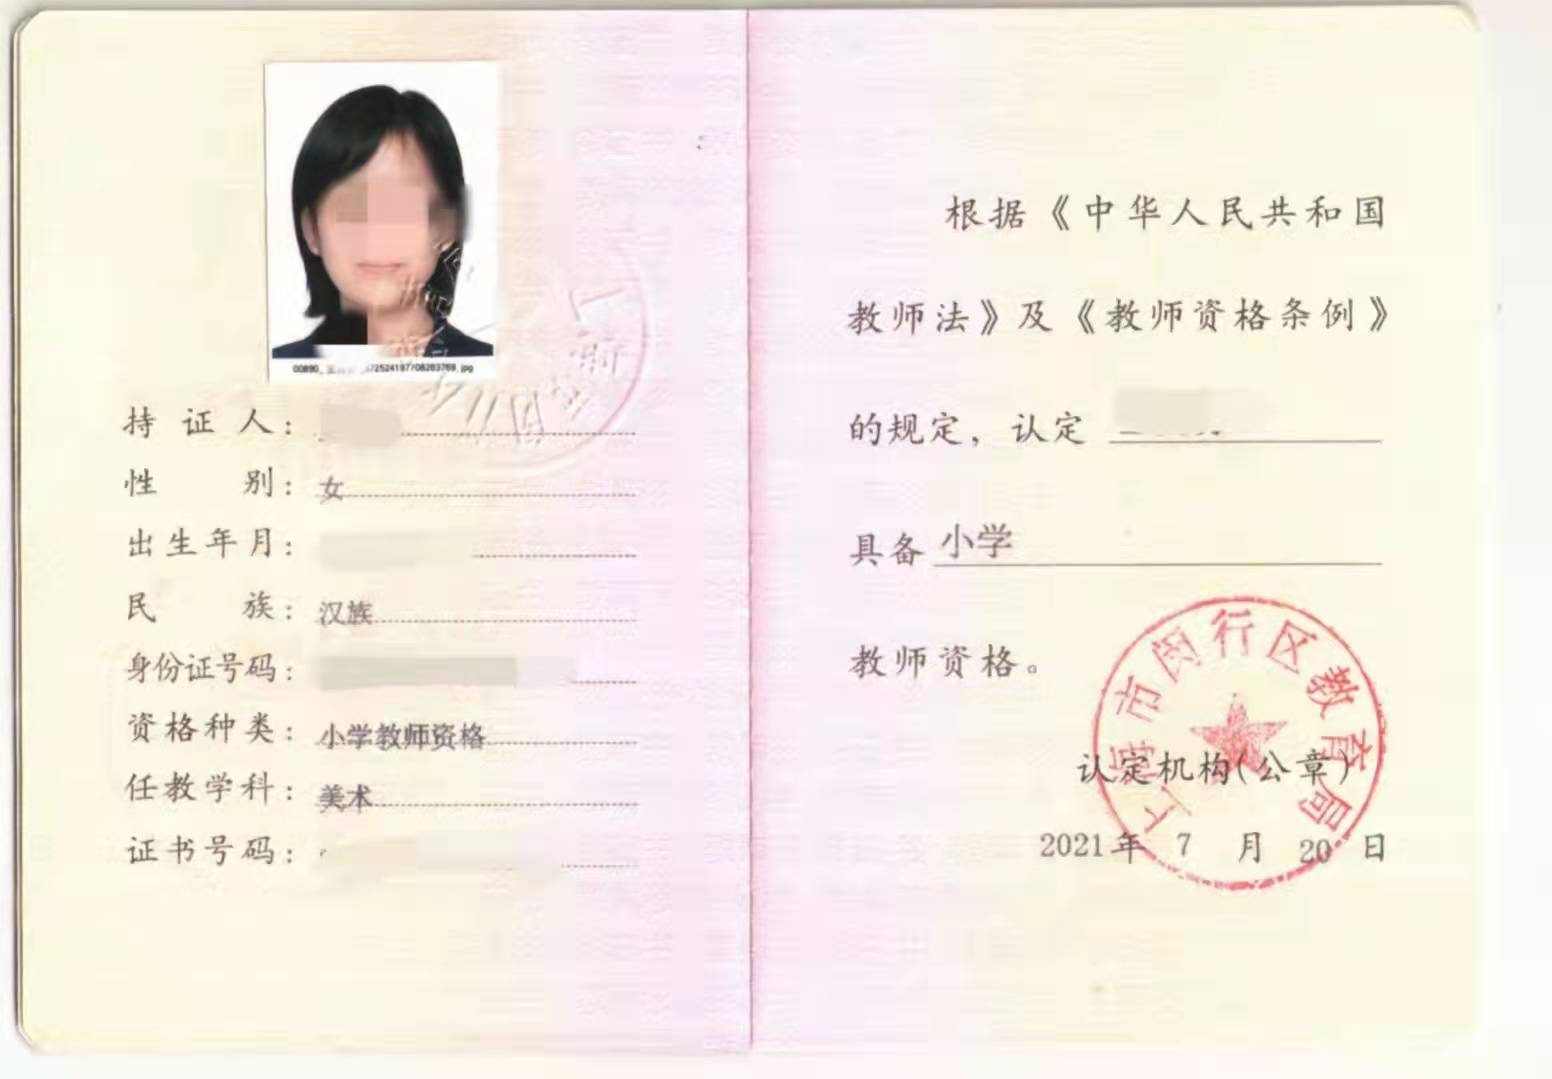 持证人：
性别：女
出生年月：
民族：汉族
身份证号码：
资格种类：小学教师资格
任教学科：美术
证书号码：
根据《中华人民共和国
教师法》及《教师资格条例》
的规定，认定
具备小学
教师资格。
上海市闵行区教育局
认定机构(公章)
2021年 7 月 20 日